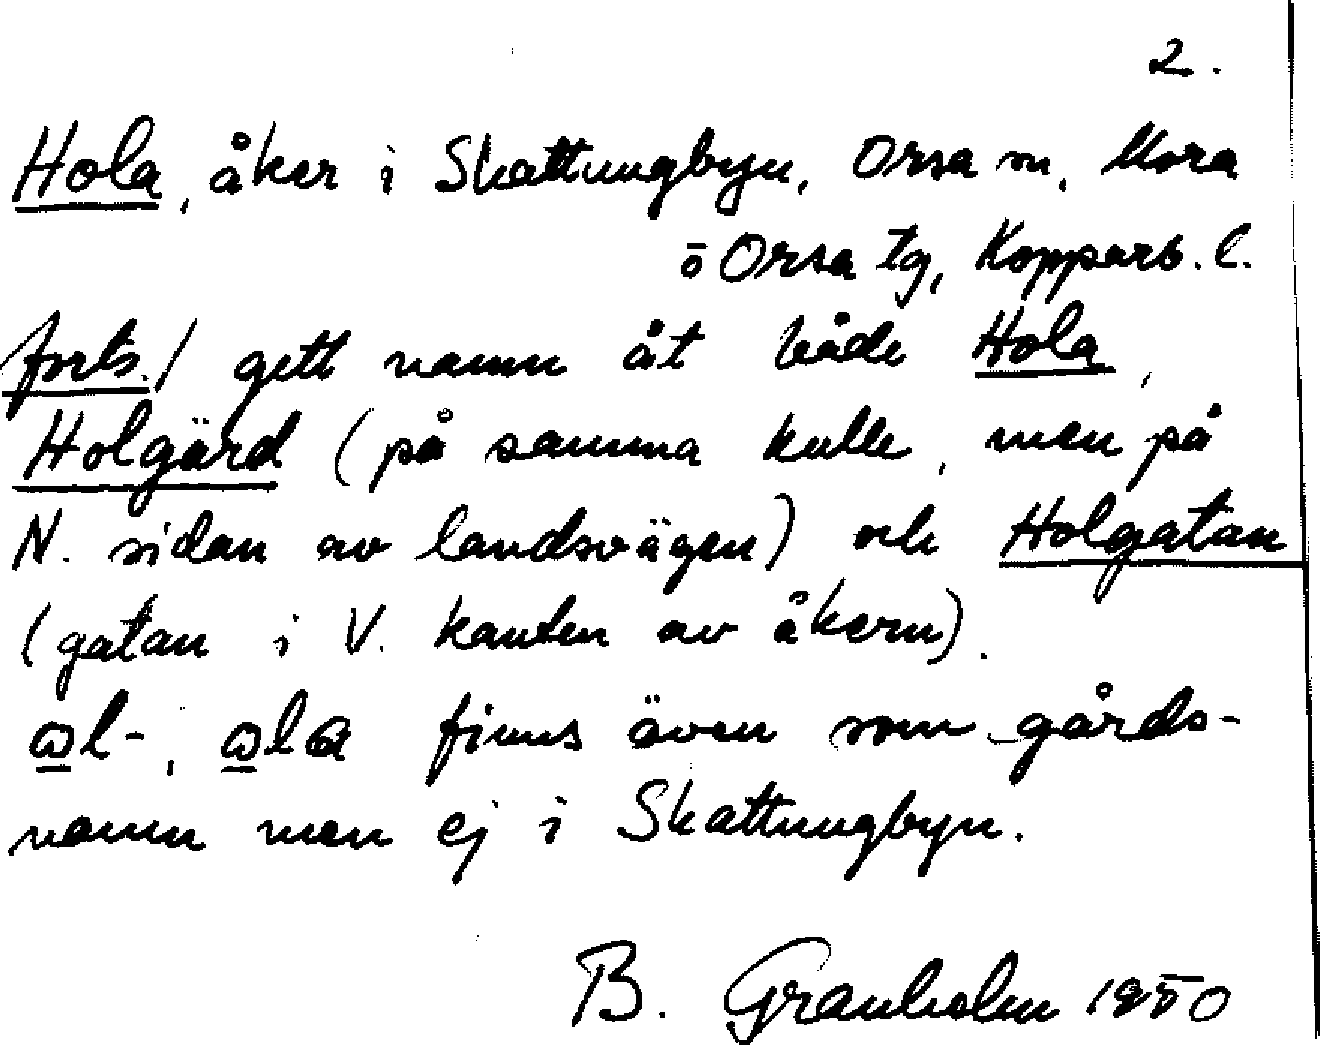 2.
Hola, åker i Skattungbyn, Orsa sn, Mora
o Orsa tg, Kopparb. l.
forts./ gett namn åt både Hola,
Holgärd (på samma kulle, men på
N. sidan av landsvägen) och Holgatan
(gatan i V. kanten av åkern).
ɷl-, ɷla finns även som gårds-
namn men ej i Skattungbyn.
B. Granholm 1950